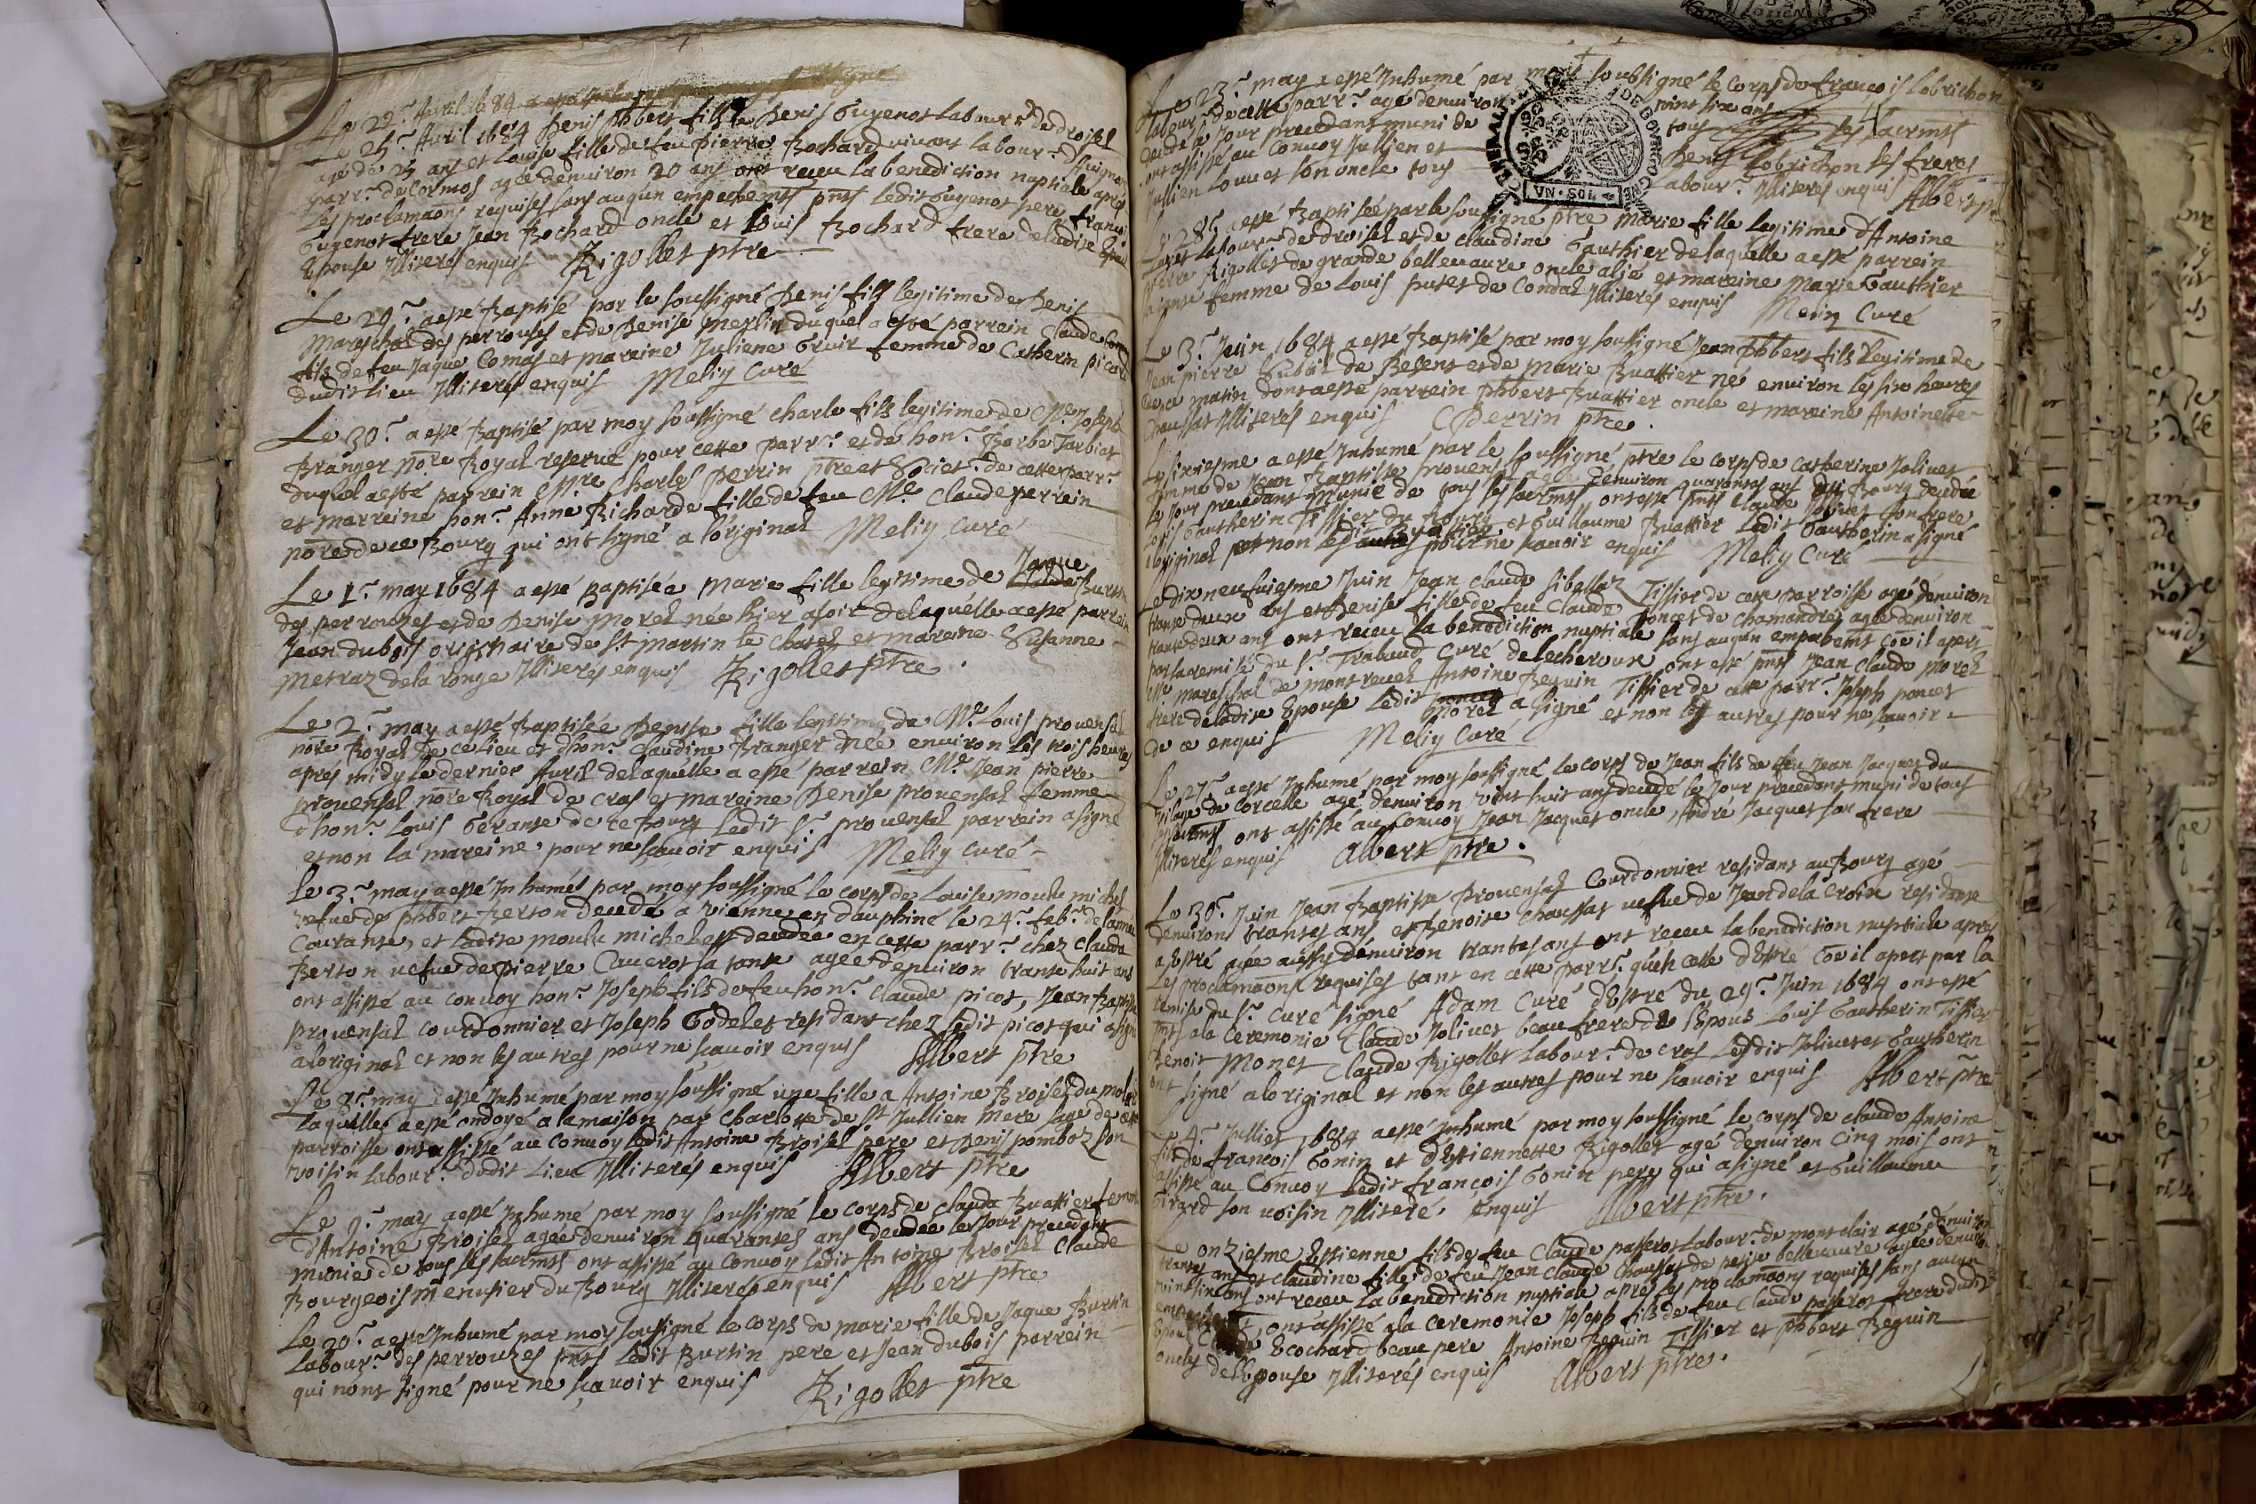 Le 25.e Avril 1684 Denis phbert fils de Denis Guyenot Labour.r de Droisel
agé de 25 ans et Louise fille de feu pierre Bochard vivant labour.r
parr.e de Cormos agée denviron 20 ans ont receu la benediction nuptiale apres
les proclamaons requises sans aucun empechemt pnts ledit Guyenot pere françoi
Guyenot frere Jean Bochard oncle et Louis Bochard frere de ladite
Epouse Illiterés enquis Rigollet ptre
Le 29.e a esté Baptisé par le soussigné Denis fils legitime de Denis
mareschal des perrouses et de Denise Merlin duquel a esté parrein Claude
fils de feu Jaque Comas et mareine Juliene Gruit femme de Catherin picard
dudit lieu Illiterés enquis Meliy Curé
Le 30.e a esté Baptisé par moy soussigné Charle fils legitime de Me Joseph
Branger nore Royal reservé pour cette parr.e et de hon.e Barbe Jarbiat
duquel a esté parrein Mre Charle perrin ptre et Societ.r de cette parr.e
et marreine hon.e Anne Richarde fille de feu Me. Claude perrein
nore de ce Bourg qui ont signé a loriginal Meliy Curé
Le 1.r may 1684 a esté Baptisée Marie fille legitime de Jaque Burtin
des perrouzes et de Denise Morel née hier a soir de laquelle a esté parrein
Jean dubois originaire de St martin le Chatel et mareine Susanne
Metraz de la ronge Illiterés enquis Rigollet ptre.
Le 2.e may a esté Baptisée Denise fille legitime de Me. Louis provensal
nore Royal de ce lieu et dhon.e Claudine Branger née environ les trois heures
apres midy le dernier Avril de laquelle a esté parrein Me. Jean pierre
provensal nore Royal de cras et mareine Denise provensal femme
dhon.e Louis Gerante de ce bourg ledit S.r provensal parrein a signé
et non la mareine pour ne scavoir enquis Meliy Curé
Le 3.e may a esté Inhumés par moy soussigné le corps de Louise moule michel
vefue de phbert Berton decedé a vienne en dauphiné le 24.e feb.r de lannée
Courante, et ladite moule michel est decedée en cette parr.e chez claude
Berton vefue de pierre Cauerot sa tante agée denviron trante huit ans
ont assisté au convoy hon.e Joseph fils de feu hon.e Claude picot, Jean Baptiste
provensal courdonnier et Joseph Godelet residant chez ledit picot qui a signé
a loriginal et non les autres pour ne scavoir enquis Albert ptre
Le may a esté Inhumé par moy soussigné une fille a Antoine Broisel du
Laquelle a esté ondoyé a la maison par Charlotte de St Jullien mere sage de cette
parroisse ont assisté au Convoy ledit Antoine Broisel pere et Denis pomboz son
voisin labour.r dudit Lieu Illiterés enquis Albert ptre
Le 9.e may a esté Inhumé par moy soussigné le corps de claude Buattier femme
d'Antoine Broisel agée denviron quarantes ans decedée le Jour precedant
munie de tous les sacrmts ont assisté au Convoy ledit Antoine Broisel Claude
Bourgeois menusier du Bourg Illiterés enquis Albert ptre
Le 20.e a esté Inhumé par moy soussigné le corps de marie fille de Jaque Burtin
Labour.r des perrouzes pnts ledit Burtin pere et Jean dubois parrein
qui nont signé pour ne scavoir enquis Rigollet ptre
Le 23.e may a esté Inhumé par moy soubsigné le Corps de francois Lobrichon
labour.r de cette parr.e agé denviron vint six ans
decedé le Jour precedant muni de tous les sacrmts
ont assisté au Convoy Jullien et Denis Lobrichon ses freres
Jullien Louuet son oncle tous Labour.r Illiterés enquis Albert ptre
GENERAL DE BOVRGOGNE
VN·SOL
Le 28.e a esté Baptisée par le soussigné ptre Marie fille legitime d'Antoine
labour.r de droisel et de claudine Gauthier de laquelle a esté parrein
pierre Rigollet de grande bellevaure oncle alié et mareine Marie Gauthier
femme de Louis putet de Condal Illiterés enquis Meliy Curé
Le 3.e Juin 1684 a esté Baptisé par moy soussigné Jean phbert fils legitime de
Jean pierre de Besent et de Marie Buattier né environ les six heures
de ce matin dont a esté parrein phbert Buattier oncle et mareine Antoinette
Chaussat Illiterés enquis CPerrin ptre.
Le sixiesme a esté Inhumé par le soussigné ptre le corps de Catherine Jolivet
femme de Jean Baptiste provensal agée denviron quarantes ans du Bourg decedée
le Jour precedant Munie de tous les sacrmts ont esté pnts Claude Jolivet son frere
Louis Gautherin Tissier du Bourg et Guillaume Buattier ledit Gautherin a signé
a loriginal et non les autres pour ne scavoir enquis Meliy Curé
Le dix neufuiesme Juin Jean Claude Sibellaz Tissier de cette parroisse agé denviron
trante deux ans et Denise fille de feu Claude poncet de Chamandre agée denviron
trante deux ans ont receu la benediction nuptiale sans aucun empechemt coe il apert
par la remise du S.r Trabaud Curé de lecheroux ont esté pnts Jean Claude Morel
mareschal de montrevel Antoine Beguin Tissier de cette parr.e Joseph poncet
frere de ladite Epouse Ledit Morel a signé et non les autres pour ne scavoir
de ce enquis Meliy Curé
Le 27.e a esté Inhumé par moy soussigné le corps de Jean fils de feu Jean Jacquet du
vilage de Corcelle agé denviron vint huit ans decedé le Jour precedant muni de tous
les sacrmts ont assisté au Convoy Jean Jacquet oncle, André Jacquet son frere
Illiterés enquis Albert ptre.
Le 30.e Juin Jean Baptiste Provensal Courdonnier residant au Bourg agé
denviron trantes ans et Benoite Chaussat vefue de Jean de la Croix residante
a Estré agée aussy denviron trantes ans ont receu la benediction nuptiale apres
Les proclamaons requises tant en cette parr.e qu'en celle d'Estré coe il apert par la
remise du S.r Curé signé Adam Curé d'Estré du 29.e Juin 1684 ont esté
pnts a la Ceremonie Claude Jolivet beau frere de l'Epoux Louis Gautherin Tissier
Benoit Monet Claude Rigollet labour.r de cras lesdit Jolivet et Gautherin
ont signé a loriginal et non les autres pour ne scavoir enquis Albert ptre
Le 4.e Jullet 1684 a esté Inhumé par moy soussigné le corps de claude Antoine
fils de francois Gonin et d'Estiennette Rigollet agé denviron Cinq mois ont
assisté au Convoy ledit françois Gonin pere qui a signé et Guillaume
Girard son voisin Illiteré enquis Albert ptre.
Le onziesme Estienne fils de feu Claude passerot Labour.r de montclair agé denviron
trante ans et Claudine fille de feu Jean Claude Chaussat de petite bellevaure agée denviron
vint six ans ont receu la benediction nuptiale apres les proclamaons requises sans aucun
ont assisté a la ceremonie Joseph fils de feu Claude passerot frere dudit
Ecochard beau pere Antoine Beguin Tissier et phbert Beguin
oncles de l'Epouse Illiterés enquis Albert ptre.